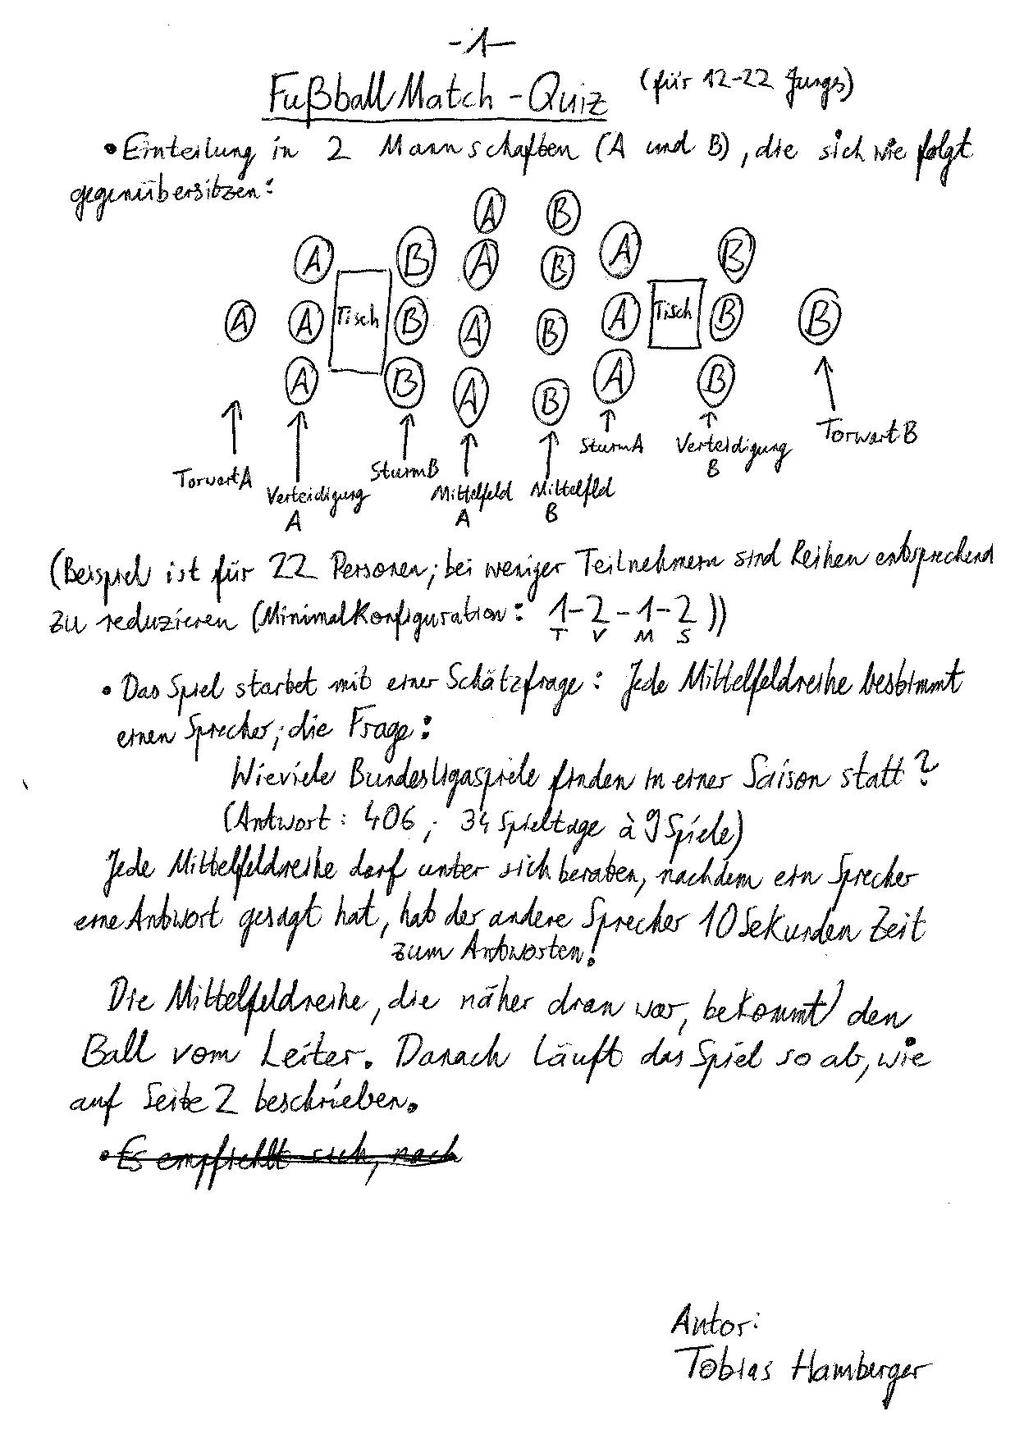 -1-
Fußball Match - Quiz (für 12-22 Jungs)
• Einteilung in 2 Mannschaften (A und B), die sich wie folgt
gegenübersitzen:
A B
A B A B A B
A A Tisch B A B A Tisch B B
A B A B A B
Torwart A Verteidigung A Sturm B Mittelfeld A Mittelfeld B Sturm A Verteidigung B Torwart B
(Beispiel ist für 22 Personen; bei weniger Teilnehmern sind Reihen entsprechend
zu reduzieren (Minimalkonfiguration: 1-2-1-2))
T V M S
• Das Spiel startet mit einer Schätzfrage: Jede Mittelfeldreihe bestimmt
einen Sprecher; die Frage:
Wieviele Bundesligaspiele finden in einer Saison statt?
(Antwort: 406; 34 Spieltage à 9 Spiele)
Jede Mittelfeldreihe darf unter sich beraten, nachdem ein Sprecher
eine Antwort gesagt hat, hat der andere Sprecher 10 Sekunden Zeit
zum Antworten!
Die Mittelfeldreihe, die näher dran war, bekommt den
Ball vom Leiter. Danach läuft das Spiel so ab, wie
auf Seite 2 beschrieben.
• Es empfiehlt sich, nach
Autor:
Tobias Hamberger